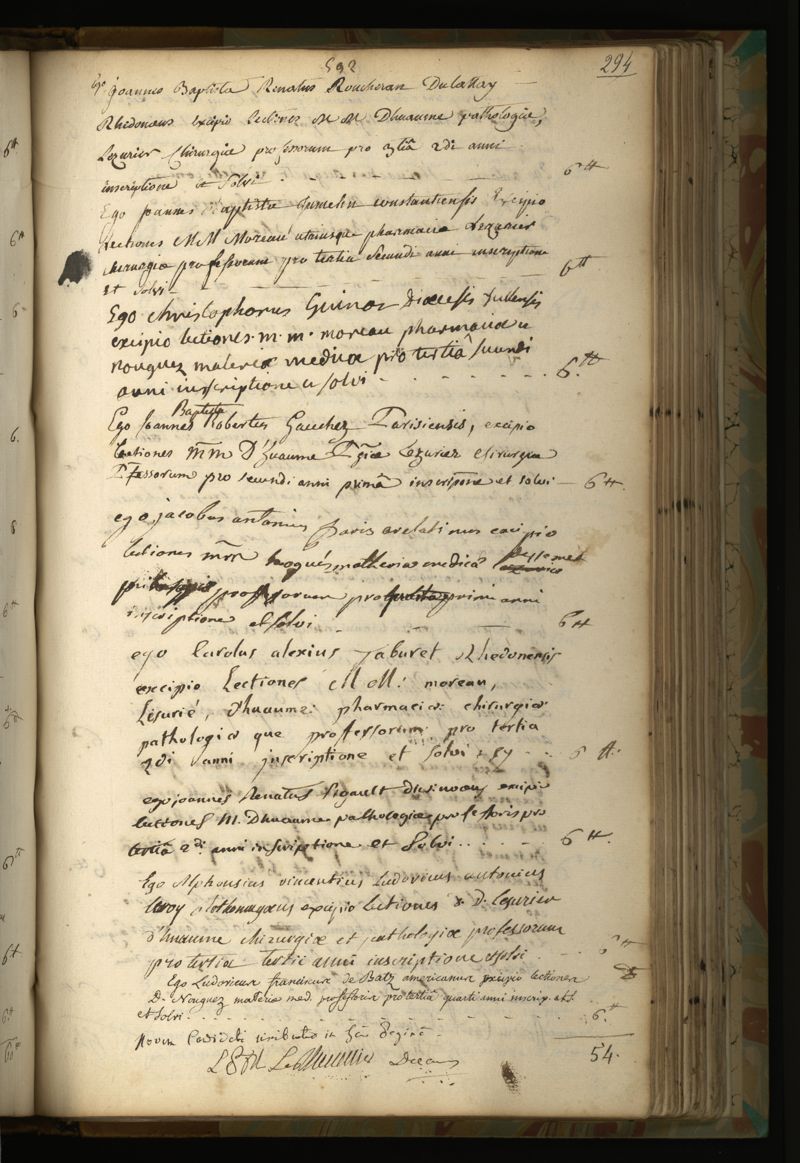 592
294
Ego joannes Baptista Renatus Roucheran Dulattay
Rhedonæus excipio lectiones M M Dhuaume pathologiæ,
Lezurier Chirurgiæ professorum pro 3tiâ 2di anni
inscriptione et Solvi 6tt
Ego joannes Baptista Jumelin constantiensis Excipio
Lectiones MM Moreau utriusque pharmaciæ Lezurier
chirurgiæ professorum pro tertia Secundi anni inscriptione
et Solvi 6tt
Ego christophorus Guinot Diœcesis tullensis
excipio lectiones m. m. moreau pharmaciæ et
nouguez materiæ medicæ pro tertiâ secundi
anni inscriptione et solvi 6tt
Ego Joannes Baptista Robertus Gauchez Parisiensis, excipio
Lectiones mm D'huaume Lezurier chirurgiæ
Pfessorum pro secundi anni primâ inscripne et solvi 6tt.
ego, jacobus antonius paris arelatinus excipio
lectiones mrr nogués matheriæ medicæ
professorum pro primi anni
inscriptione et solvi 6tt
ego Carolus alexius jaburet Rhedonensis
excipio Lectiones M M. moreau,
Lesurié, Dhuaume: pharmaciæ chirurgiæ
pathologiæ que professorum pro tertia
2di anni inscriptione et solvi 6 tt.
ego joannes Renatus Pigault excipio
lectiones M. Dhuaume pathologiæ professoris pro
tertiâ 2di anni inscriptione et Solvi 6tt.
Ego Alphonsius vincentius Ludovicus antonius
Leroy Rothomagæus excipio lectiones D. Lesurier
d'huaume chirurgiæ et pathologiæ professorum
pro tertia tertii anni inscriptione et solvi 6tt
Ego Ludovicus franciscus de Batz americanus excipio lectiones
D. Nouguez materiæ med. professoris pro tertiâ quarti anni inscrip.
et Solvi 6.tt
54.
Le Thieullier Decanus